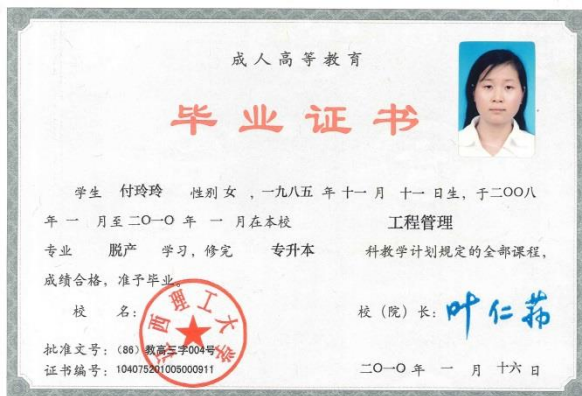 成人高等教育
毕业证书
学生 付玲玲 性别 女 ，一九八五 年 十一 月 十一 日生，于二〇〇八
年 一 月至 二〇一〇 年 一 月在本校 工程管理
专业 脱产 学习，修完 专升本 科教学计划规定的全部课程，
成绩合格，准予毕业。
校 名：
江西理工大学
校（院）长：叶仁荪
批准文号：（86）教高三字004号
证书编号：104075201005000911
二〇一〇 年 一 月 十六 日